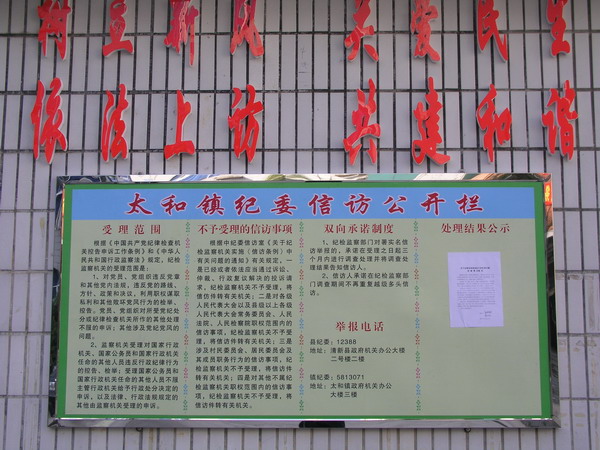 树立新风 关爱民生
依法上访 共建和谐
太和镇纪委信访公开栏
受理范围
根据《中国共产党纪律检查机
关控告申诉工作条例》和《中华人
民共和国行政监察法》规定，纪检
监察机关的受理范围是：
1、对党员、党组织违反党章
和其他党内法规，违反党的路线、
方针、政策和决议，利用职权谋取
私利和其他败坏党风行为的检举、
控告。党员、党组织对所受党纪处
分或纪律检查机关所作的其他处理
不服的申诉；其他涉及党纪党风的
问题。
2、监察机关受理对国家行政
机关、国家公务员和国家行政机关
任命的其他人员违反行政纪律行为
的控告、检举；受理国家公务员和
国家行政机关任命的其他人员不服
主管行政机关给予行政处分决定的
申诉，以及法律、行政法规规定的
其他由监察机关受理的申诉。
不予受理的信访事项
根据中纪委信访室《关于纪
检监察机关实施〈信访条例〉中
有关问题的通知》有关规定，一
是已经或者依法应当通过诉讼、
仲裁、行政复议解决的投诉请
求，纪检监察机关不予受理，将
信访件转有关机关；二是对各级
人民代表大会以及县级以上各级
人民代表大会常务委员会、人民
法院、人民检察院职权范围内的
信访事项，纪检监察机关不予受
理，将信访件转有关机关；三是
涉及对村民委员会、居民委员会及
其成员职务行为的信访事项，纪检
监察机关不予受理，将信访件
转有关机关；四是对其他不属纪
检监察机关职权范围内的信访事
项，纪检监察机关不予受理，将
信访件转有关机关。
双向承诺制度
1、纪检监察部门对署实名信
访举报的，承诺在受理之日起三
个月内进行调查处理并将调查处
理结果告知信访人。
2、信访人承诺在纪检监察部
门调查期间不再重复越级多头信
访。
举报电话
县纪委：12388
地址：清新县政府机关办公大楼
二号楼二楼
镇纪委：5813071
地址：太和镇政府机关办公
大楼三楼
处理结果公示